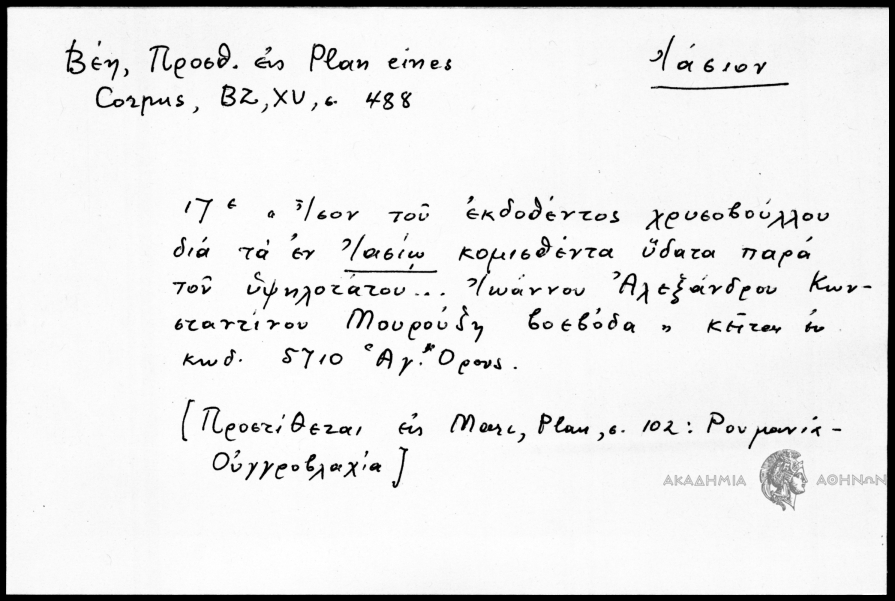 Βέη, Προσθ. εἰς Plan eines
Corpus, BZ, XV, σ. 488
Ἰάσιον
17ε " Ἴσον τοῦ ἐκδοθέντος χρυσοβούλλου
διά τά ἐν Ἰασίῳ κομισθέντα ὕδατα παρά
τοῦ ὑψηλοτάτου... Ἰωάννου Ἀλεξάνδρου Κων-
σταντίνου Μουρούζη βοεβόδα " κεῖται ἐν
κωδ. 5710 Ἁγ. Ὄρους.
[Προστίθεται εἰς Marc, Plan, σ. 102: Ρουμανία-
Οὑγγροβλαχία]
ΑΚΑΔΗΜΙΑ ΑΘΗΝΩΝ